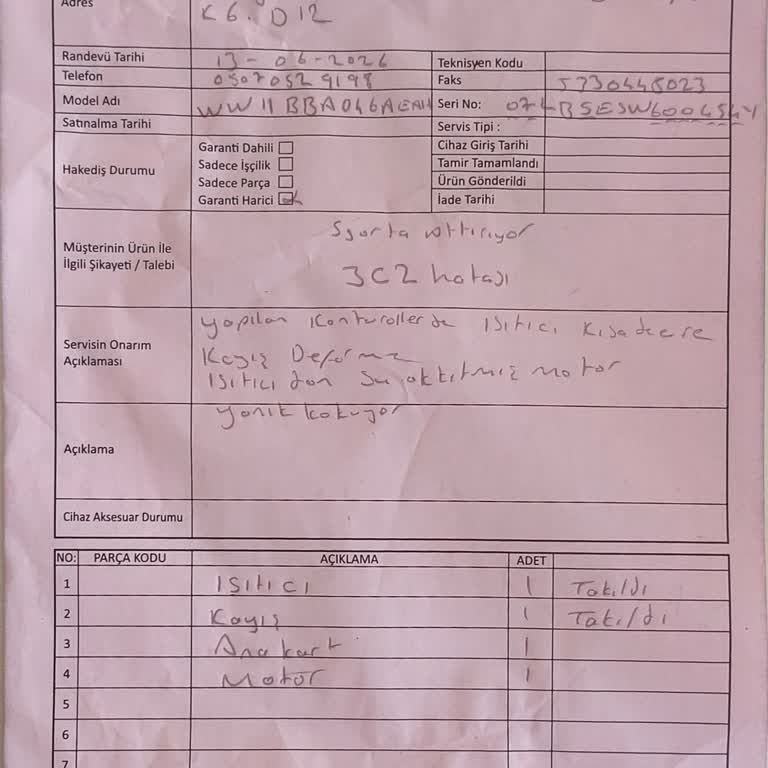 Adres K6. D12
Randevü Tarihi 13-06-2026 Teknisyen Kodu
Telefon 0507052 9198 Faks 5730448023
Model Adı WW11BBA046AEAH Seri No: 074BSESW600454Y
Satınalma Tarihi Servis Tipi :
Hakediş Durumu
Garanti Dahili Cihaz Giriş Tarihi
Sadece İşçilik Tamir Tamamlandı
Sadece Parça Ürün Gönderildi
Garanti Harici İade Tarihi
Müşterinin Ürün İle
İlgili Şikayeti / Talebi
Sgorta attırıyor
3C2 hatası
Servisin Onarım
Açıklaması
Yapılan Konturollerde Isıtıcı Kısadevre
Kayış Deforme
Isıtıcıdan Su akıtmış motor
yanık kokuyor
Açıklama
Cihaz Aksesuar Durumu
NO: PARÇA KODU AÇIKLAMA ADET
1 Isıtıcı 1 Takıldı
2 Kayış 1 Takıldı
3 Ana kart 1
4 Motor 1
5
6
7